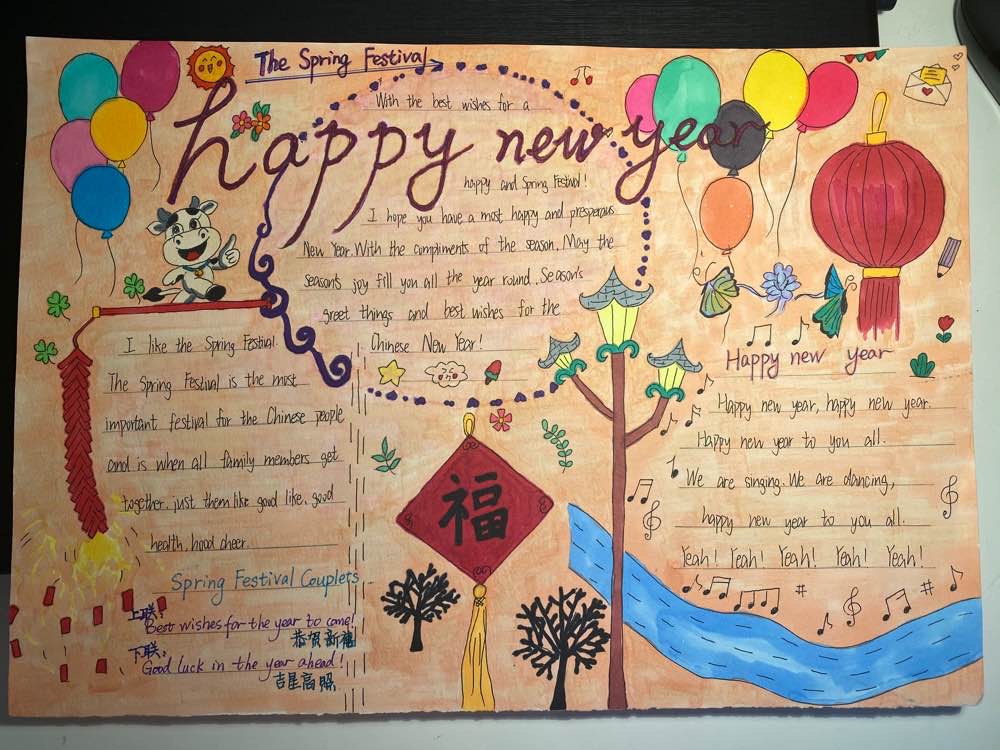 The Spring Festival
With the best wishes for a
happy new year
happy and Spring Festival!
I hope you have a most happy and presperous
New Year. With the compliments of the season. May the
season's joy fill you all the year round. Season's
greet things and best wishes for the
Chinese New Year!
I like the Spring Festival.
The Spring Festival is the most
important festival for the Chinese people
and is when all family members get
together. just them like good like. good
health. hood cheer.
Spring Festival Couplets
上联:
Best wishes for the year to come!
恭贺新禧
下联:
Good luck in the year ahead!
吉星高照
福
Happy new year
Happy new year, happy new year.
Happy new year to you all.
We are singing. We are dancing,
happy new year to you all.
Yeah! Yeah! Yeah! Yeah! Yeah!